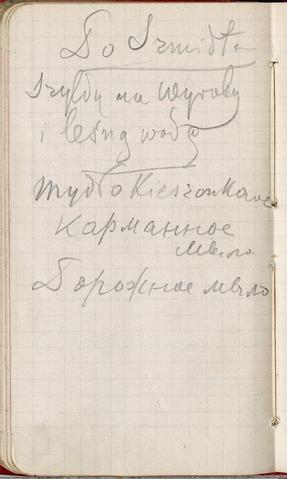 Do Szmidta
Szyldy na Wyroby
i leśną wodę
Mydło Kieszonkowe
Карманное
мыло
Дорожное мыло